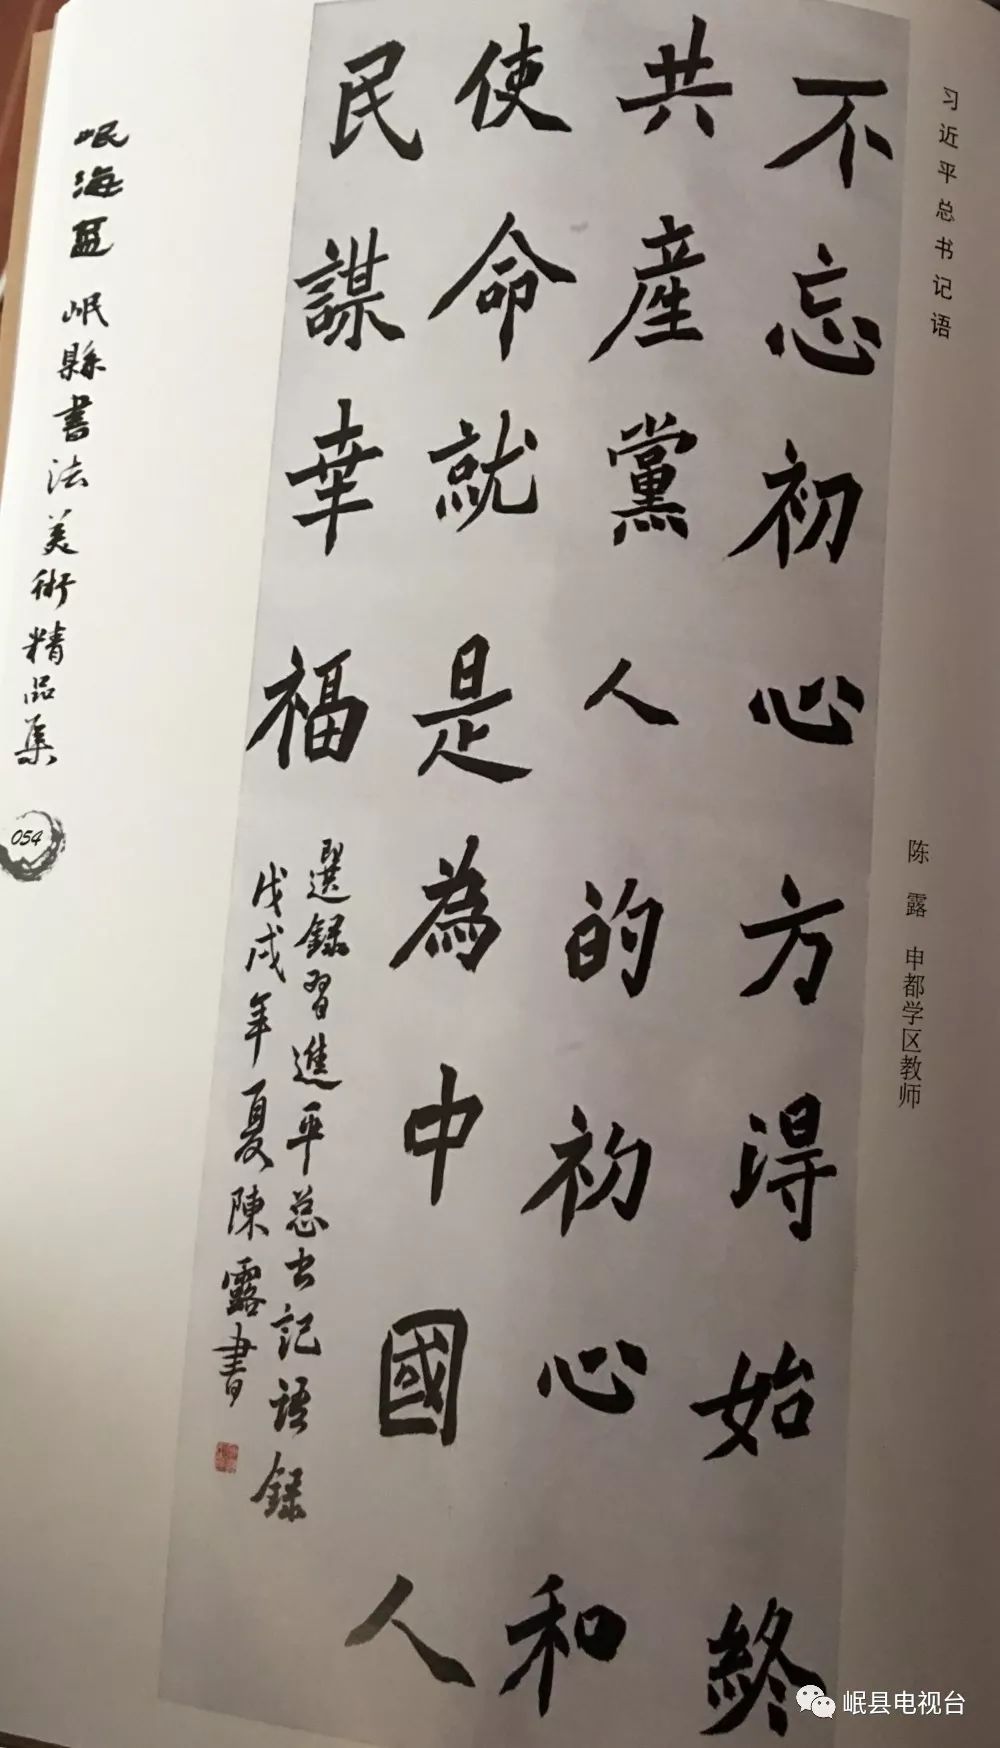 习近平总书记语
陈露 申都学区教师
不忘初心方得始終
共產黨人的初心和
使命就是為中國人
民謀幸福
選録習進平总书記語録
戊戌年夏陳露書
岷海藍 岷縣書法美術精品集
054
岷县电视台